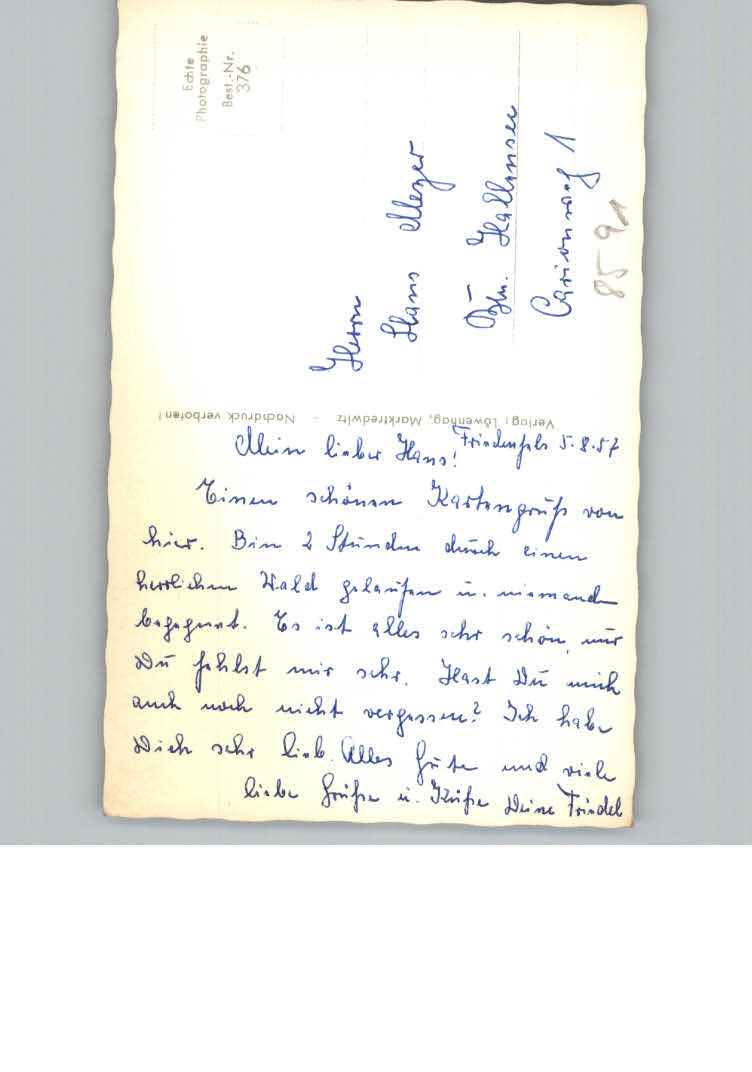 Echte
Photographie
Best.-Nr.
376
Herrn
Hans Meyer
Bln. Hallensee
Carionweg 1
8591
Verlag: Löwenhag, Marktredwitz - Nachdruck verboten!
Friedenfels 5.8.57
Mein lieber Hans!
Einen schönen Kartengruß von
hier. Bin 2 Stunden durch einen
herrlichen Wald gelaufen u. niemanden
begegnet. Es ist alles sehr schön, nur
Du fehlst mir sehr. Hast Du mich
auch noch nicht vergessen? Ich habe
Dich sehr lieb. Alles Gute und viele
liebe Grüße u. Küße Deine Friedel